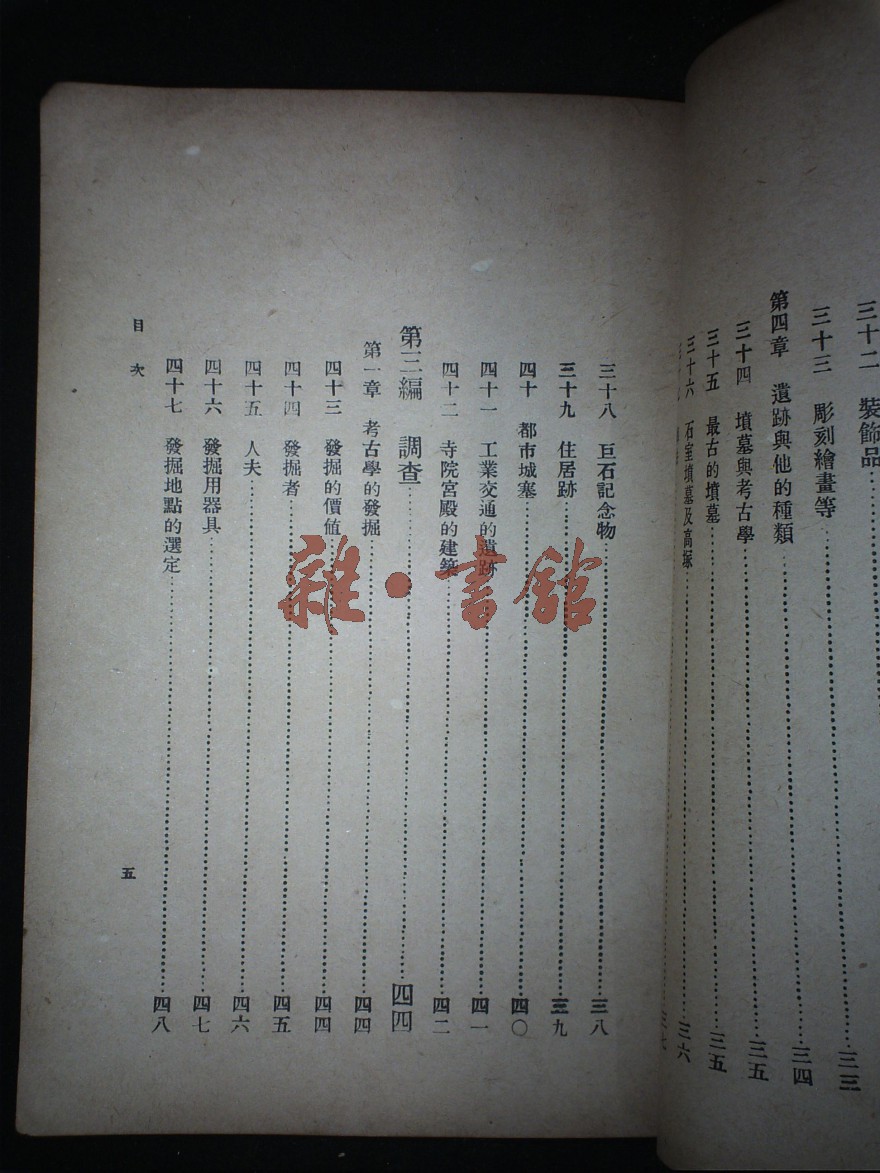 三十二　裝飾品……三三
三十三　彫刻繪畫等……三四
第四章　遺跡與他的種類……三五
三十四　墳墓與考古學……三五
三十五　最古的墳墓……三五
三十六　石室墳墓及高塚……三六
三十八　巨石記念物……三八
三十九　住居跡……三九
四十　都市城塞……四〇
四十一　工業交通的遺跡……四一
四十二　寺院宮殿的建築……四二
第三編　調查……四四
第一章　考古學的發掘……四四
四十三　發掘的價值……四四
四十四　發掘者……四五
四十五　人夫……四六
四十六　發掘用器具……四七
四十七　發掘地點的選定……四八
目次
五
雜·書館